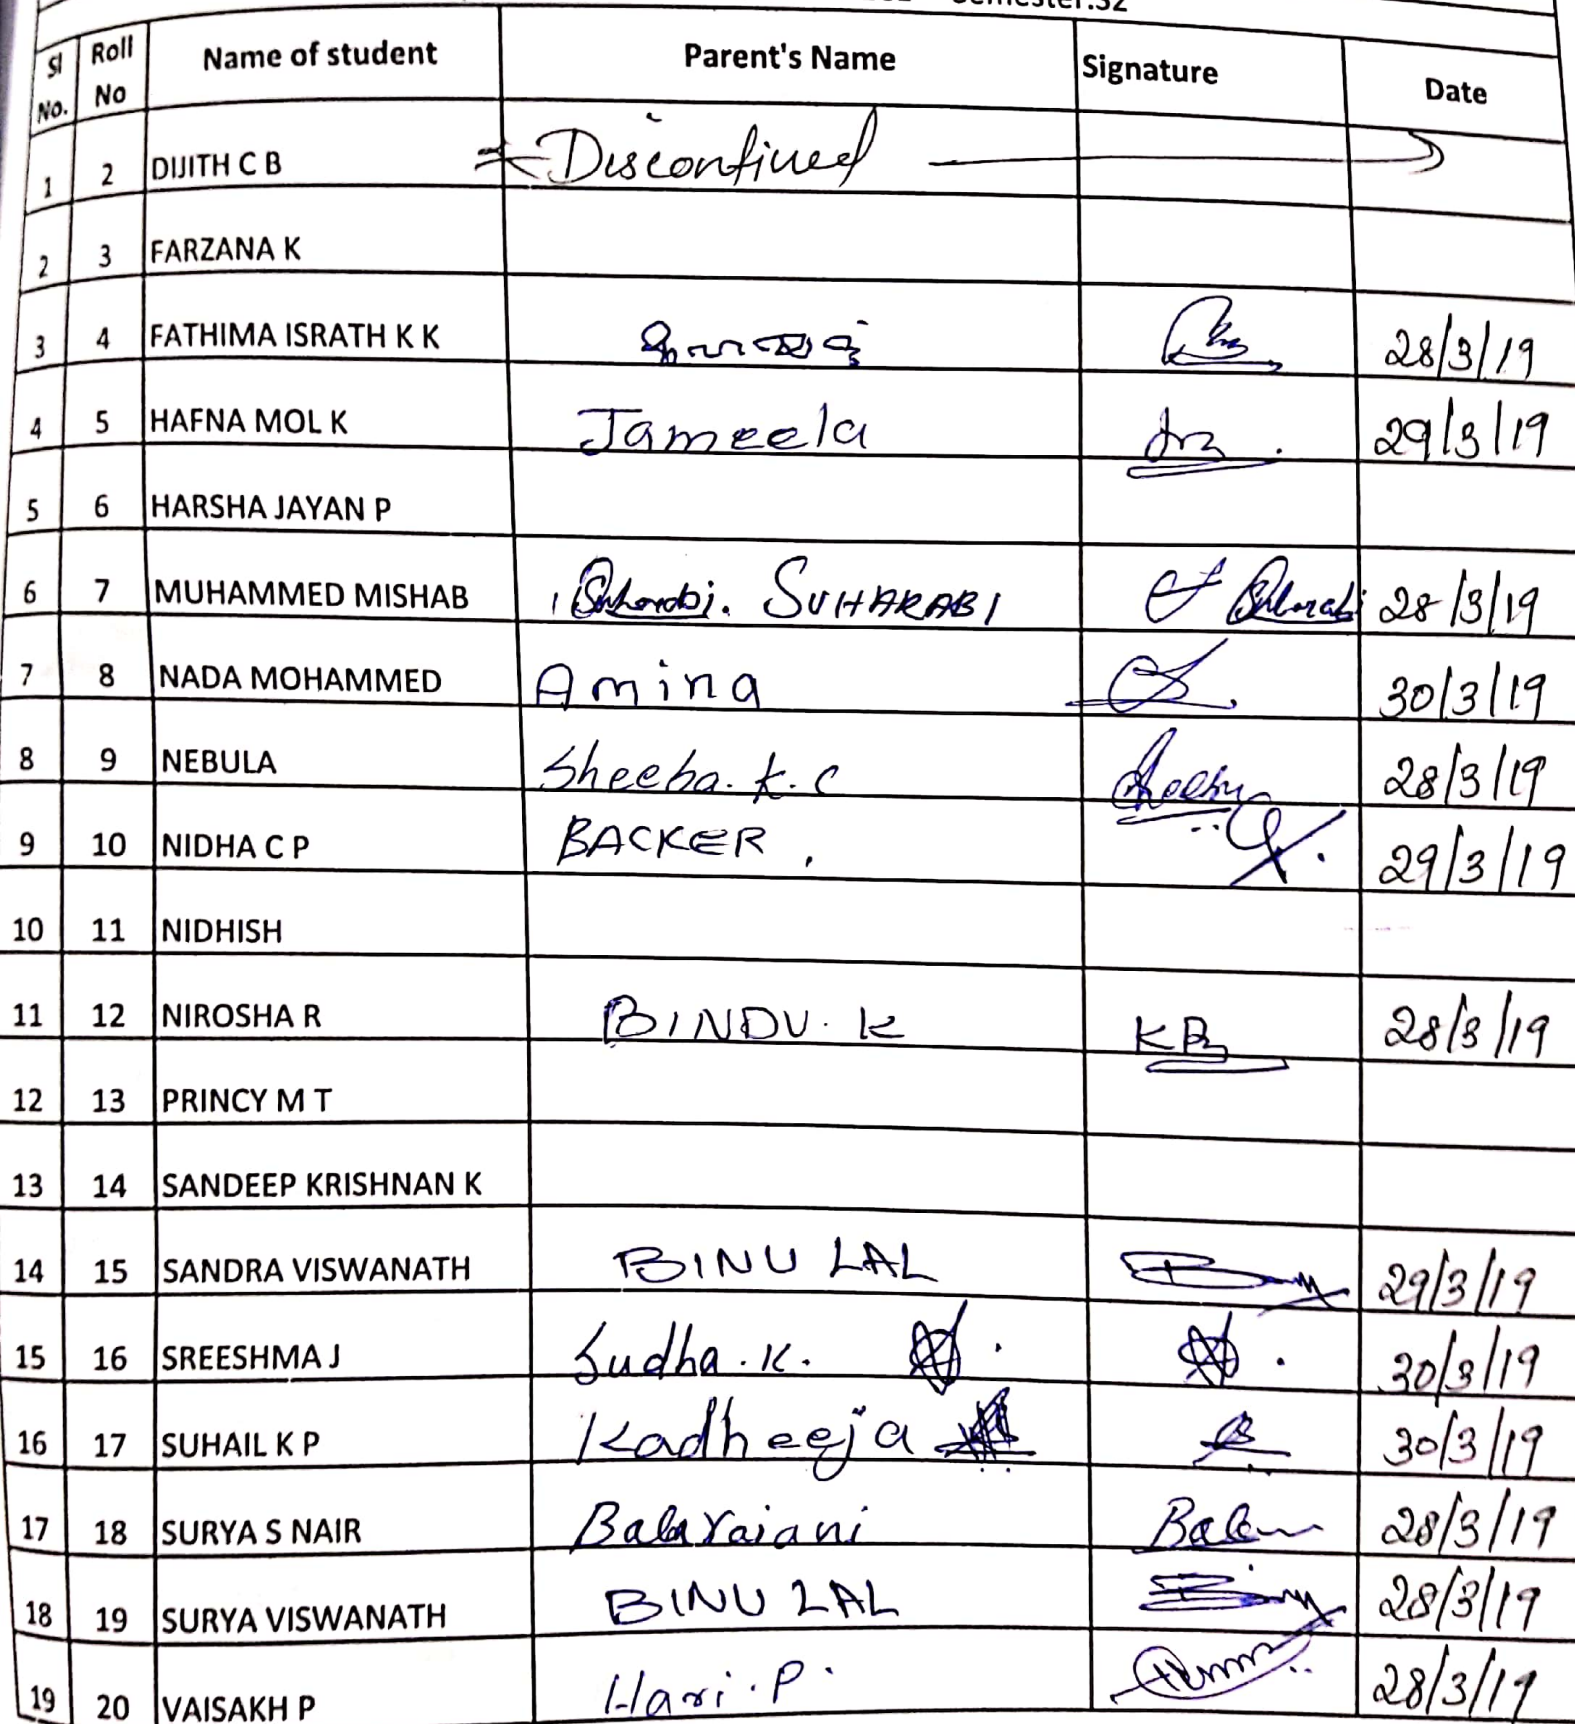 Semester:S2
Sl No. Roll No Name of student Parent's Name Signature Date
1 2 DIJITH C B Disconfined
2 3 FARZANA K
3 4 FATHIMA ISRATH K K 28/3/19
4 5 HAFNA MOL K Jameela 29/3/19
5 6 HARSHA JAYAN P
6 7 MUHAMMED MISHAB Suharabi. SUHARABI Suharabi 28/3/19
7 8 NADA MOHAMMED Amina 30/3/19
8 9 NEBULA Sheeba. K. C 28/3/19
9 10 NIDHA C P BACKER 29/3/19
10 11 NIDHISH
11 12 NIROSHA R BINDU. K KB 28/3/19
12 13 PRINCY M T
13 14 SANDEEP KRISHNAN K
14 15 SANDRA VISWANATH BINU LAL 29/3/19
15 16 SREESHMA J Sudha. K. 30/3/19
16 17 SUHAIL K P Kadheeja 30/3/19
17 18 SURYA S NAIR Balarajani 28/3/19
18 19 SURYA VISWANATH BINU LAL 28/3/19
19 20 VAISAKH P Hari. P. 28/3/19